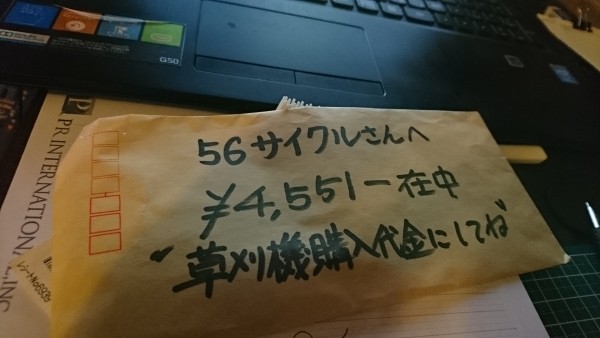 56サイクルさんへ
¥4,551-在中
"草刈機購入代金にしてね"
G50
P PR.INTERNATIONAL, INC